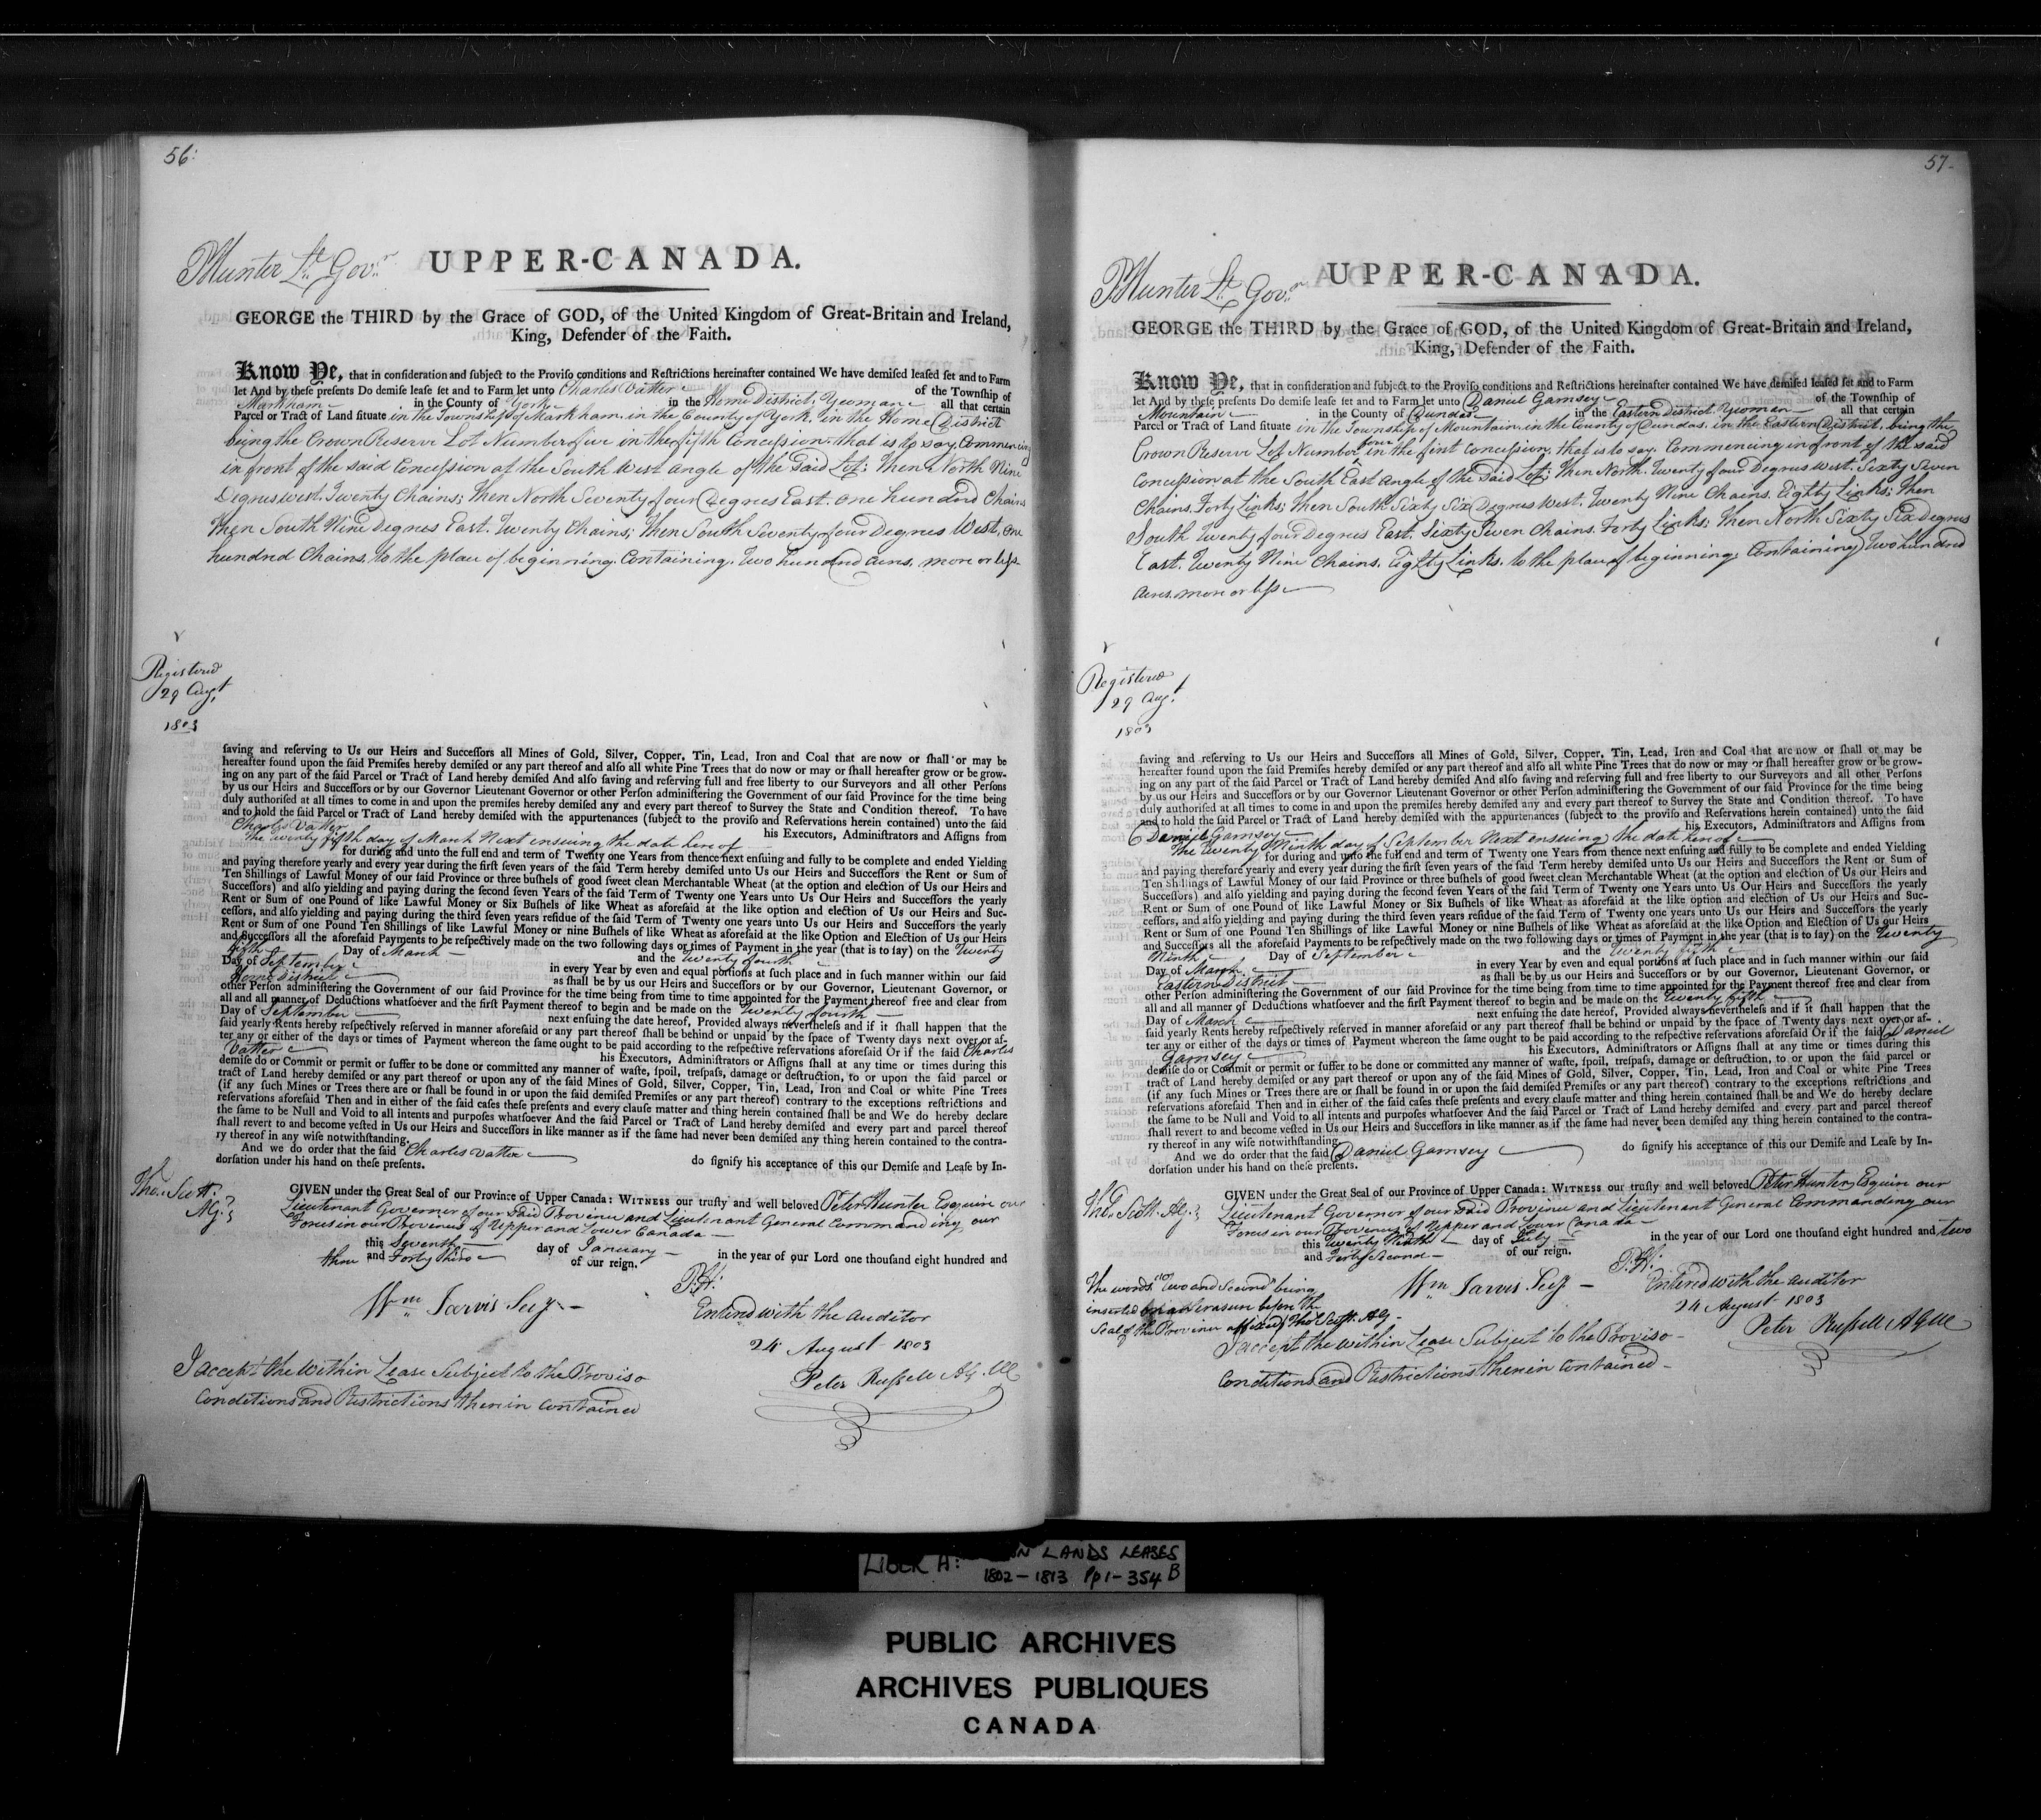 56:
PHunter Lt. Govr.
UPPER-CANADA.
GEORGE the THIRD by the Grace of GOD, of the United Kingdom of Great-Britain and Ireland,
King, Defender of the Faith.
Know Ye, that in consideration and subject to the Proviso conditions and Restrictions hereinafter contained We have demised leased set and to Farm
let And by these presents Do demise lease set and to Farm let unto Charles Vatter of the Township of
Markham in the County of York in the Home District, Yeoman all that certain
Parcel or Tract of Land situate in the Township of Markham, in the County of York, in the Home District
being the Crown Reserve Lot Number five in the fifth Concession, that is to say, Commencing
in front of the said Concession at the South West angle of the said Lot; Then North Nine
Degrees West, Twenty Chains; Then North Seventy four Degrees East, one hundred Chains
Then South Nine Degrees East, Twenty Chains; Then South Seventy four Degrees West, one
hundred Chains, to the place of beginning, Containing, Two hundred acres, more or less
Registered
29 Augt.
1803
saving and reserving to Us our Heirs and Successors all Mines of Gold, Silver, Copper, Tin, Lead, Iron and Coal that are now or shall or may be
hereafter found upon the said Premises hereby demised or any part thereof and also all white Pine Trees that do now or may or shall hereafter grow or be grow-
ing on any part of the said Parcel or Tract of Land hereby demised And also saving and reserving full and free liberty to our Surveyors and all other Persons
by us our Heirs and Successors or by our Governor Lieutenant Governor or other Person administering the Government of our said Province for the time being
duly authorised at all times to come in and upon the premises hereby demised any and every part thereof to Survey the State and Condition thereof. To have
and to hold the said Parcel or Tract of Land hereby demised with the appurtenances (subject to the proviso and Reservations herein contained) unto the said
Charles Vatter his Executors, Administrators and Assigns from
The Twenty fifth day of March Next ensuing the date hereof
for during and unto the full end and term of Twenty one Years from thence next ensuing and fully to be complete and ended Yielding
and paying therefore yearly and every year during the first seven years of the said Term hereby demised unto Us our Heirs and Successors the Rent or Sum of
Ten Shillings of Lawful Money of our said Province or three bushels of good sweet clean Merchantable Wheat (at the option and election of Us our Heirs and
Successors) and also yielding and paying during the second seven Years of the said Term of Twenty one Years unto Us Our Heirs and Successors the yearly
Rent or Sum of one Pound of like Lawful Money or Six Bushels of like Wheat as aforesaid at the like option and election of Us our Heirs and Suc-
cessors, and also yielding and paying during the third seven years residue of the said Term of Twenty one years unto Us our Heirs and Successors the yearly
Rent or Sum of one Pound Ten Shillings of like Lawful Money or nine Bushels of like Wheat as aforesaid at the like Option and Election of Us our Heirs
and Successors all the aforesaid Payments to be respectively made on the two following days or times of Payment in the year (that is to say) on the Twenty
fifth Day of March and the Twenty fourth
Day of September in every Year by even and equal portions at such place and in such manner within our said
Home District as shall be by us our Heirs and Successors or by our Governor, Lieutenant Governor, or
other Person administering the Government of our said Province for the time being from time to time appointed for the Payment thereof free and clear from
all and all manner of Deductions whatsoever and the first Payment thereof to begin and be made on the Twenty fourth
Day of September next ensuing the date hereof, Provided always nevertheless and if it shall happen that the
said yearly Rents hereby respectively reserved in manner aforesaid or any part thereof shall be behind or unpaid by the space of Twenty days next over or af-
ter any or either of the days or times of Payment whereon the same ought to be paid according to the respective reservations aforesaid Or if the said Charles
Vatter his Executors, Administrators or Assigns shall at any time or times during this
demise do or Commit or permit or suffer to be done or committed any manner of waste, spoil, trespass, damage or destruction, to or upon the said parcel or
tract of Land hereby demised or any part thereof or upon any of the said Mines of Gold, Silver, Copper, Tin, Lead, Iron and Coal or white Pine Trees
(if any such Mines or Trees there are or shall be found in or upon the said demised Premises or any part thereof) contrary to the exceptions restrictions and
reservations aforesaid Then and in either of the said cases these presents and every clause matter and thing herein contained shall be and We do hereby declare
the same to be Null and Void to all intents and purposes whatsoever And the said Parcel or Tract of Land hereby demised and every part and parcel thereof
shall revert to and become vested in Us our Heirs and Successors in like manner as if the same had never been demised any thing herein contained to the contra-
ry thereof in any wise notwithstanding.
And we do order that the said Charles Vatter do signify his acceptance of this our Demise and Lease by In-
dorsation under his hand on these presents.
Thos. Scott. Atty. G.
GIVEN under the Great Seal of our Province of Upper Canada: WITNESS our trusty and well beloved Peter Hunter Esquire our
Lieutenant Governor of our said Province and Lieutenant General Commanding our
Forces in our Provinces of Upper and Lower Canada
this Seventh day of January in the year of our Lord one thousand eight hundred and
three and Forty third of our reign.
P.H:
Wm Jarvis Secy
Entered with the Auditor
24 August 1803
Peter Russell
I accept the within Lease Subject to the Proviso
Conditions and Restrictions therein contained
57
PHunter Lt. Govr.
UPPER-CANADA.
GEORGE the THIRD by the Grace of GOD, of the United Kingdom of Great-Britain and Ireland,
King, Defender of the Faith.
Know Ye, that in consideration and subject to the Proviso conditions and Restrictions hereinafter contained We have demised leased set and to Farm
let And by these presents Do demise lease set and to Farm let unto Daniel Garnsey of the Township of
Mountain in the County of Dundas in the Eastern District Yeoman all that certain
Parcel or Tract of Land situate in the Township of Mountain, in the County of Dundas, in the Eastern District, being the
Crown Reserve Lot Number four in the first Concession, that is to say, Commencing in front of the said
Concession at the South East angle of the said Lot; Then North, Twenty four Degrees West, Sixty Seven
Chains, Forty Links; Then South Sixty Six Degrees West, Twenty Nine Chains, Eighty Links; Then
South Twenty four Degrees East, Sixty Seven Chains, Forty Links; Then North Sixty Six Degrees
East, Twenty Nine Chains, Eighty Links, to the place of beginning; Containing Two hundred
acres, more or less
Registered
29 Augt.
1803
saving and reserving to Us our Heirs and Successors all Mines of Gold, Silver, Copper, Tin, Lead, Iron and Coal that are now or shall or may be
hereafter found upon the said Premises hereby demised or any part thereof and also all white Pine Trees that do now or may or shall hereafter grow or be grow-
ing on any part of the said Parcel or Tract of Land hereby demised And also saving and reserving full and free liberty to our Surveyors and all other Persons
by us our Heirs and Successors or by our Governor Lieutenant Governor or other Person administering the Government of our said Province for the time being
duly authorised at all times to come in and upon the premises hereby demised any and every part thereof to Survey the State and Condition thereof. To have
and to hold the said Parcel or Tract of Land hereby demised with the appurtenances (subject to the proviso and Reservations herein contained) unto the said
Daniel Garnsey his Executors, Administrators and Assigns from
The Twenty Ninth day of September Next ensuing the date hereof
for during and unto the full end and term of Twenty one Years from thence next ensuing and fully to be complete and ended Yielding
and paying therefore yearly and every year during the first seven years of the said Term hereby demised unto Us our Heirs and Successors the Rent or Sum of
Ten Shillings of Lawful Money of our said Province or three bushels of good sweet clean Merchantable Wheat (at the option and election of Us our Heirs and
Successors) and also yielding and paying during the second seven Years of the said Term of Twenty one Years unto Us Our Heirs and Successors the yearly
Rent or Sum of one Pound of like Lawful Money or Six Bushels of like Wheat as aforesaid at the like option and election of Us our Heirs and Suc-
cessors, and also yielding and paying during the third seven years residue of the said Term of Twenty one years unto Us our Heirs and Successors the yearly
Rent or Sum of one Pound Ten Shillings of like Lawful Money or nine Bushels of like Wheat as aforesaid at the like Option and Election of Us our Heirs
and Successors all the aforesaid Payments to be respectively made on the two following days or times of Payment in the year (that is to say) on the Twenty
Ninth Day of September and the Twenty fifth
Day of March in every Year by even and equal portions at such place and in such manner within our said
Eastern District as shall be by us our Heirs and Successors or by our Governor, Lieutenant Governor, or
other Person administering the Government of our said Province for the time being from time to time appointed for the Payment thereof free and clear from
all and all manner of Deductions whatsoever and the first Payment thereof to begin and be made on the Twenty fifth
Day of March next ensuing the date hereof, Provided always nevertheless and if it shall happen that the
said yearly Rents hereby respectively reserved in manner aforesaid or any part thereof shall be behind or unpaid by the space of Twenty days next over or af-
ter any or either of the days or times of Payment whereon the same ought to be paid according to the respective reservations aforesaid Or if the said Daniel
Garnsey his Executors, Administrators or Assigns shall at any time or times during this
demise do or Commit or permit or suffer to be done or committed any manner of waste, spoil, trespass, damage or destruction, to or upon the said parcel or
tract of Land hereby demised or any part thereof or upon any of the said Mines of Gold, Silver, Copper, Tin, Lead, Iron and Coal or white Pine Trees
(if any such Mines or Trees there are or shall be found in or upon the said demised Premises or any part thereof) contrary to the exceptions restrictions and
reservations aforesaid Then and in either of the said cases these presents and every clause matter and thing herein contained shall be and We do hereby declare
the same to be Null and Void to all intents and purposes whatsoever And the said Parcel or Tract of Land hereby demised and every part and parcel thereof
shall revert to and become vested in Us our Heirs and Successors in like manner as if the same had never been demised any thing herein contained to the contra-
ry thereof in any wise notwithstanding.
And we do order that the said Daniel Garnsey do signify his acceptance of this our Demise and Lease by In-
dorsation under his hand on these presents.
Thos. Scott. Atty. G.
GIVEN under the Great Seal of our Province of Upper Canada: WITNESS our trusty and well beloved Peter Hunter, Esquire our
Lieutenant Governor of our said Province and Lieutenant General Commanding our
Forces in our Provinces of Upper and Lower Canada
this Twenty Ninth day of July in the year of our Lord one thousand eight hundred and two
and Forty Second of our reign.
P.H:
Wm Jarvis Secy
Entered with the Auditor
24 August 1803
Peter Russell
The words "Two and Second" being
inserted on an Erasure before the
Seal of the Province affixed Thos. Scott. A G
I accept the within Lease Subject to the Proviso
Conditions and Restrictions therein contained
LIBER A: LANDS LEASES
1802-1813 Pp 1-354 B
PUBLIC ARCHIVES
ARCHIVES PUBLIQUES
CANADA